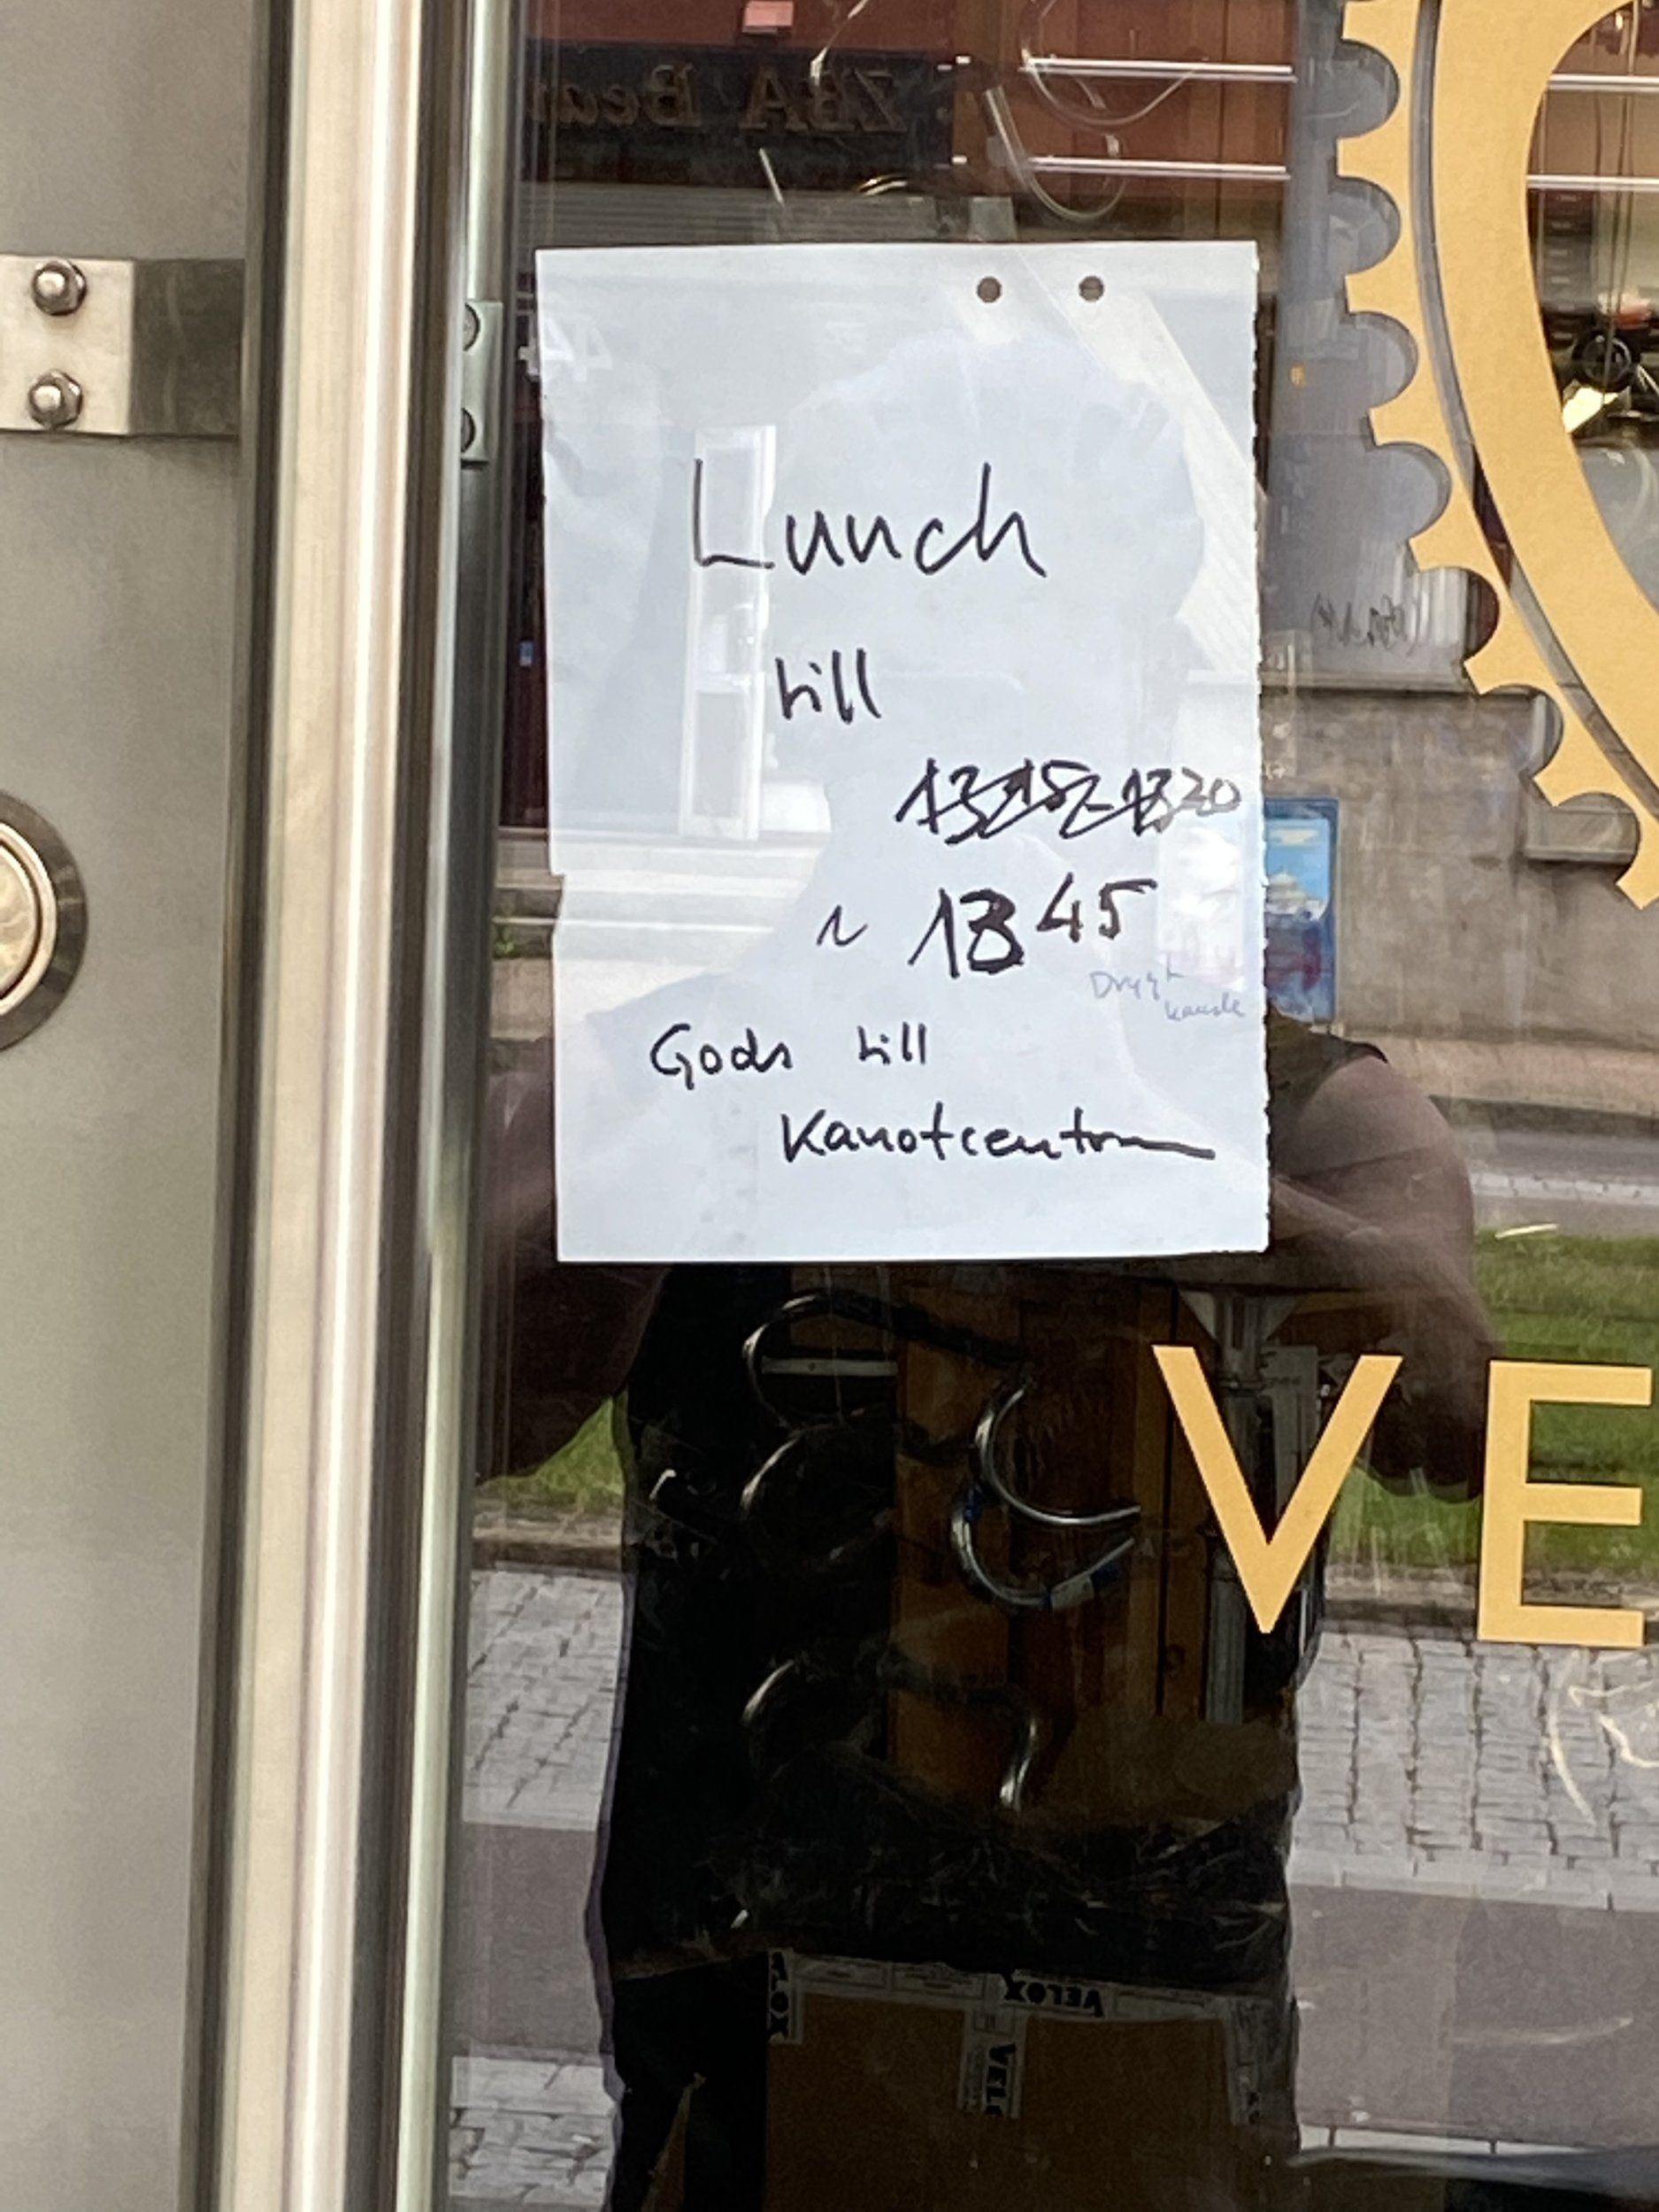 ZBA Bea
44
Lunch
till
13 15 - 13 20
~ 13 45
Drygt
kanske
Gods till
Kanotcentrum
VE
VELOX
VELOX
VELO